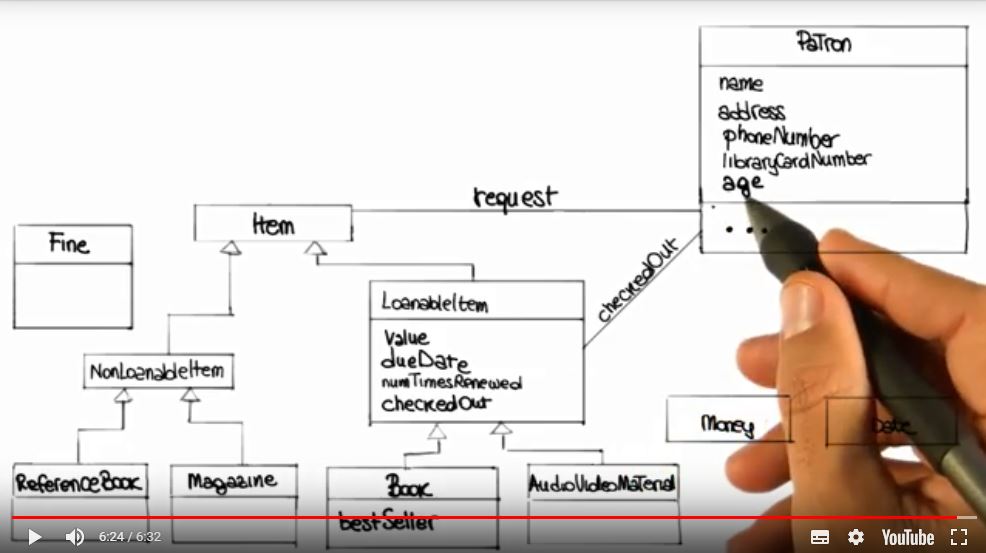 Patron
name
address
phoneNumber
libraryCardNumber
age
...
request
Item
Fine
checkedOut
LoanableItem
value
dueDate
numTimesRenewed
checkedOut
NonLoanableItem
Money
Date
ReferenceBook
Magazine
Book
bestSeller
AudioVideoMaterial
6:24 / 6:32
YouTube